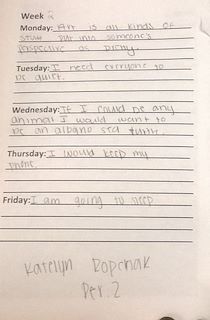 Week 2
Monday: Art is all kinds of
stuff put into someone's
perspective as
Tuesday: I need everyone to
be quiet.
Wednesday: If I could be any
animal I would want to
be an albano sea turtle.
Thursday: I would keep my
phone.
Friday: I am going to sleep
Katelyn Ropchak
Per. 2